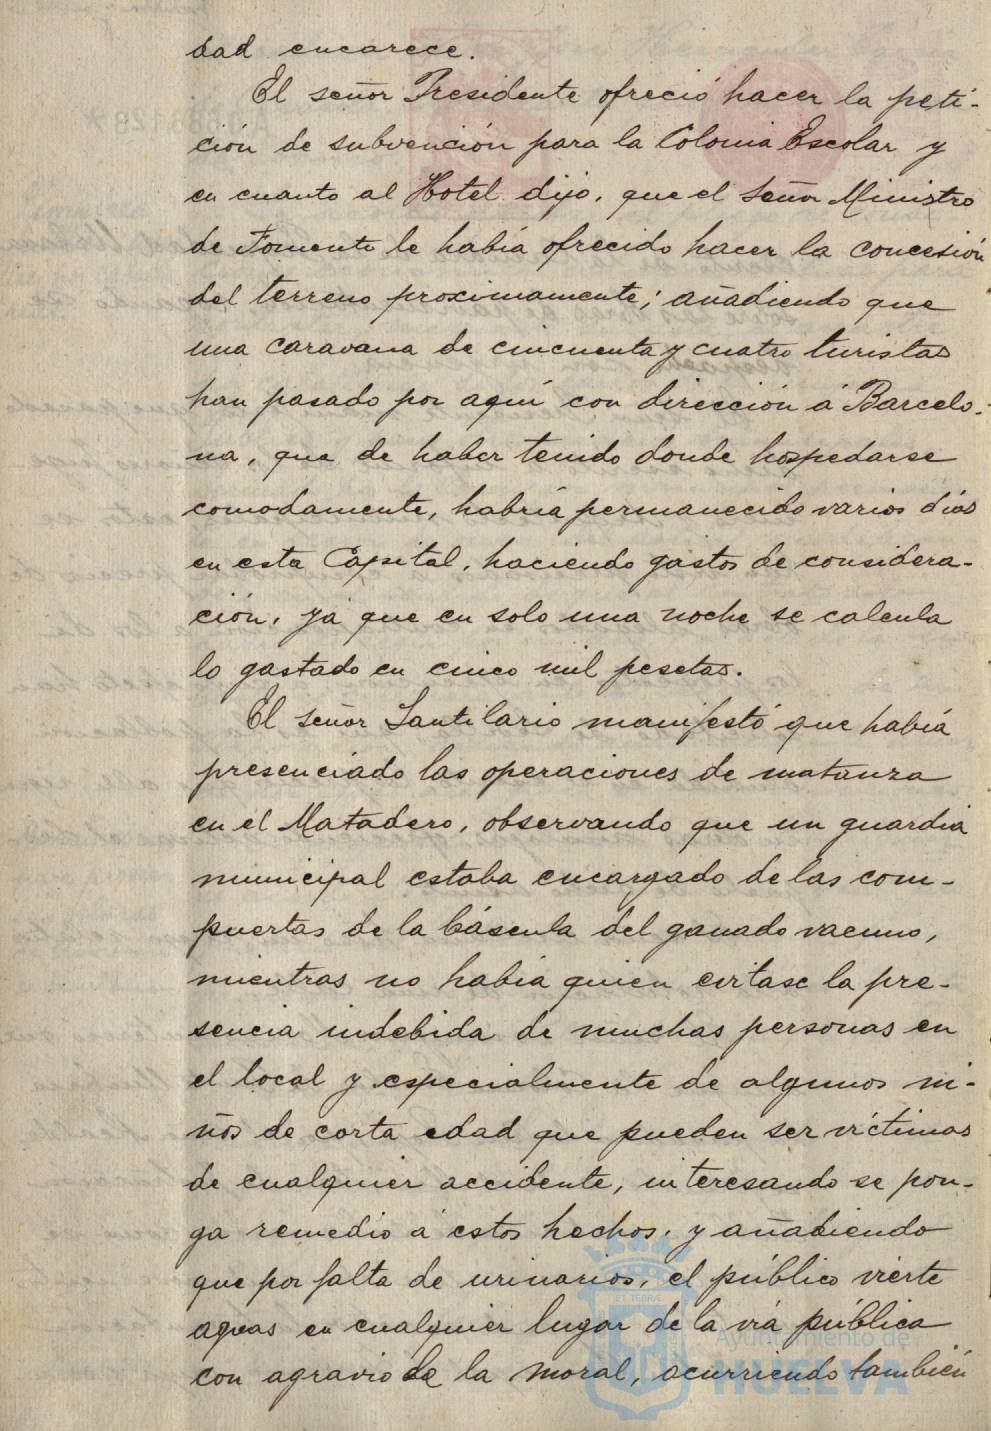 dad encarece.
El señor Presidente ofreció hacer la peti-
ción de subvención para la Colonia Escolar y
en cuanto al Hotel dijo, que el señor Ministro
de Fomento le había ofrecido hacer la concesión
del terreno proximamente; añadiendo que
una caravana de cincuenta y cuatro turistas
han pasado por aquí con dirección á Barcelo-
na, que de haber tenido donde hospedarse
comodamente, habría permanecido varios dias
en esta Capital, haciendo gastos de considera-
ción, ya que en solo una noche se calcula
lo gastado en cinco mil pesetas.
El señor Santilario manifestó que había
presenciado las operaciones de matanza
en el Matadero, observando que un guardia
municipal estaba encargado de las com-
puertas de la báscula del ganado vacuno,
mientras no había quien evitase la pre-
sencia indebida de muchas personas en
el local y especialmente de algunos ni-
ños de corta edad que pueden ser víctimas
de cualquier accidente, interesando se pon-
ga remedio á estos hechos, y añadiendo
que por falta de urinarios, el público vierte
aguas en cualquier lugar de la vía pública
con agravio de la moral, ocurriendo también
Ayuntamiento de
HUELVA